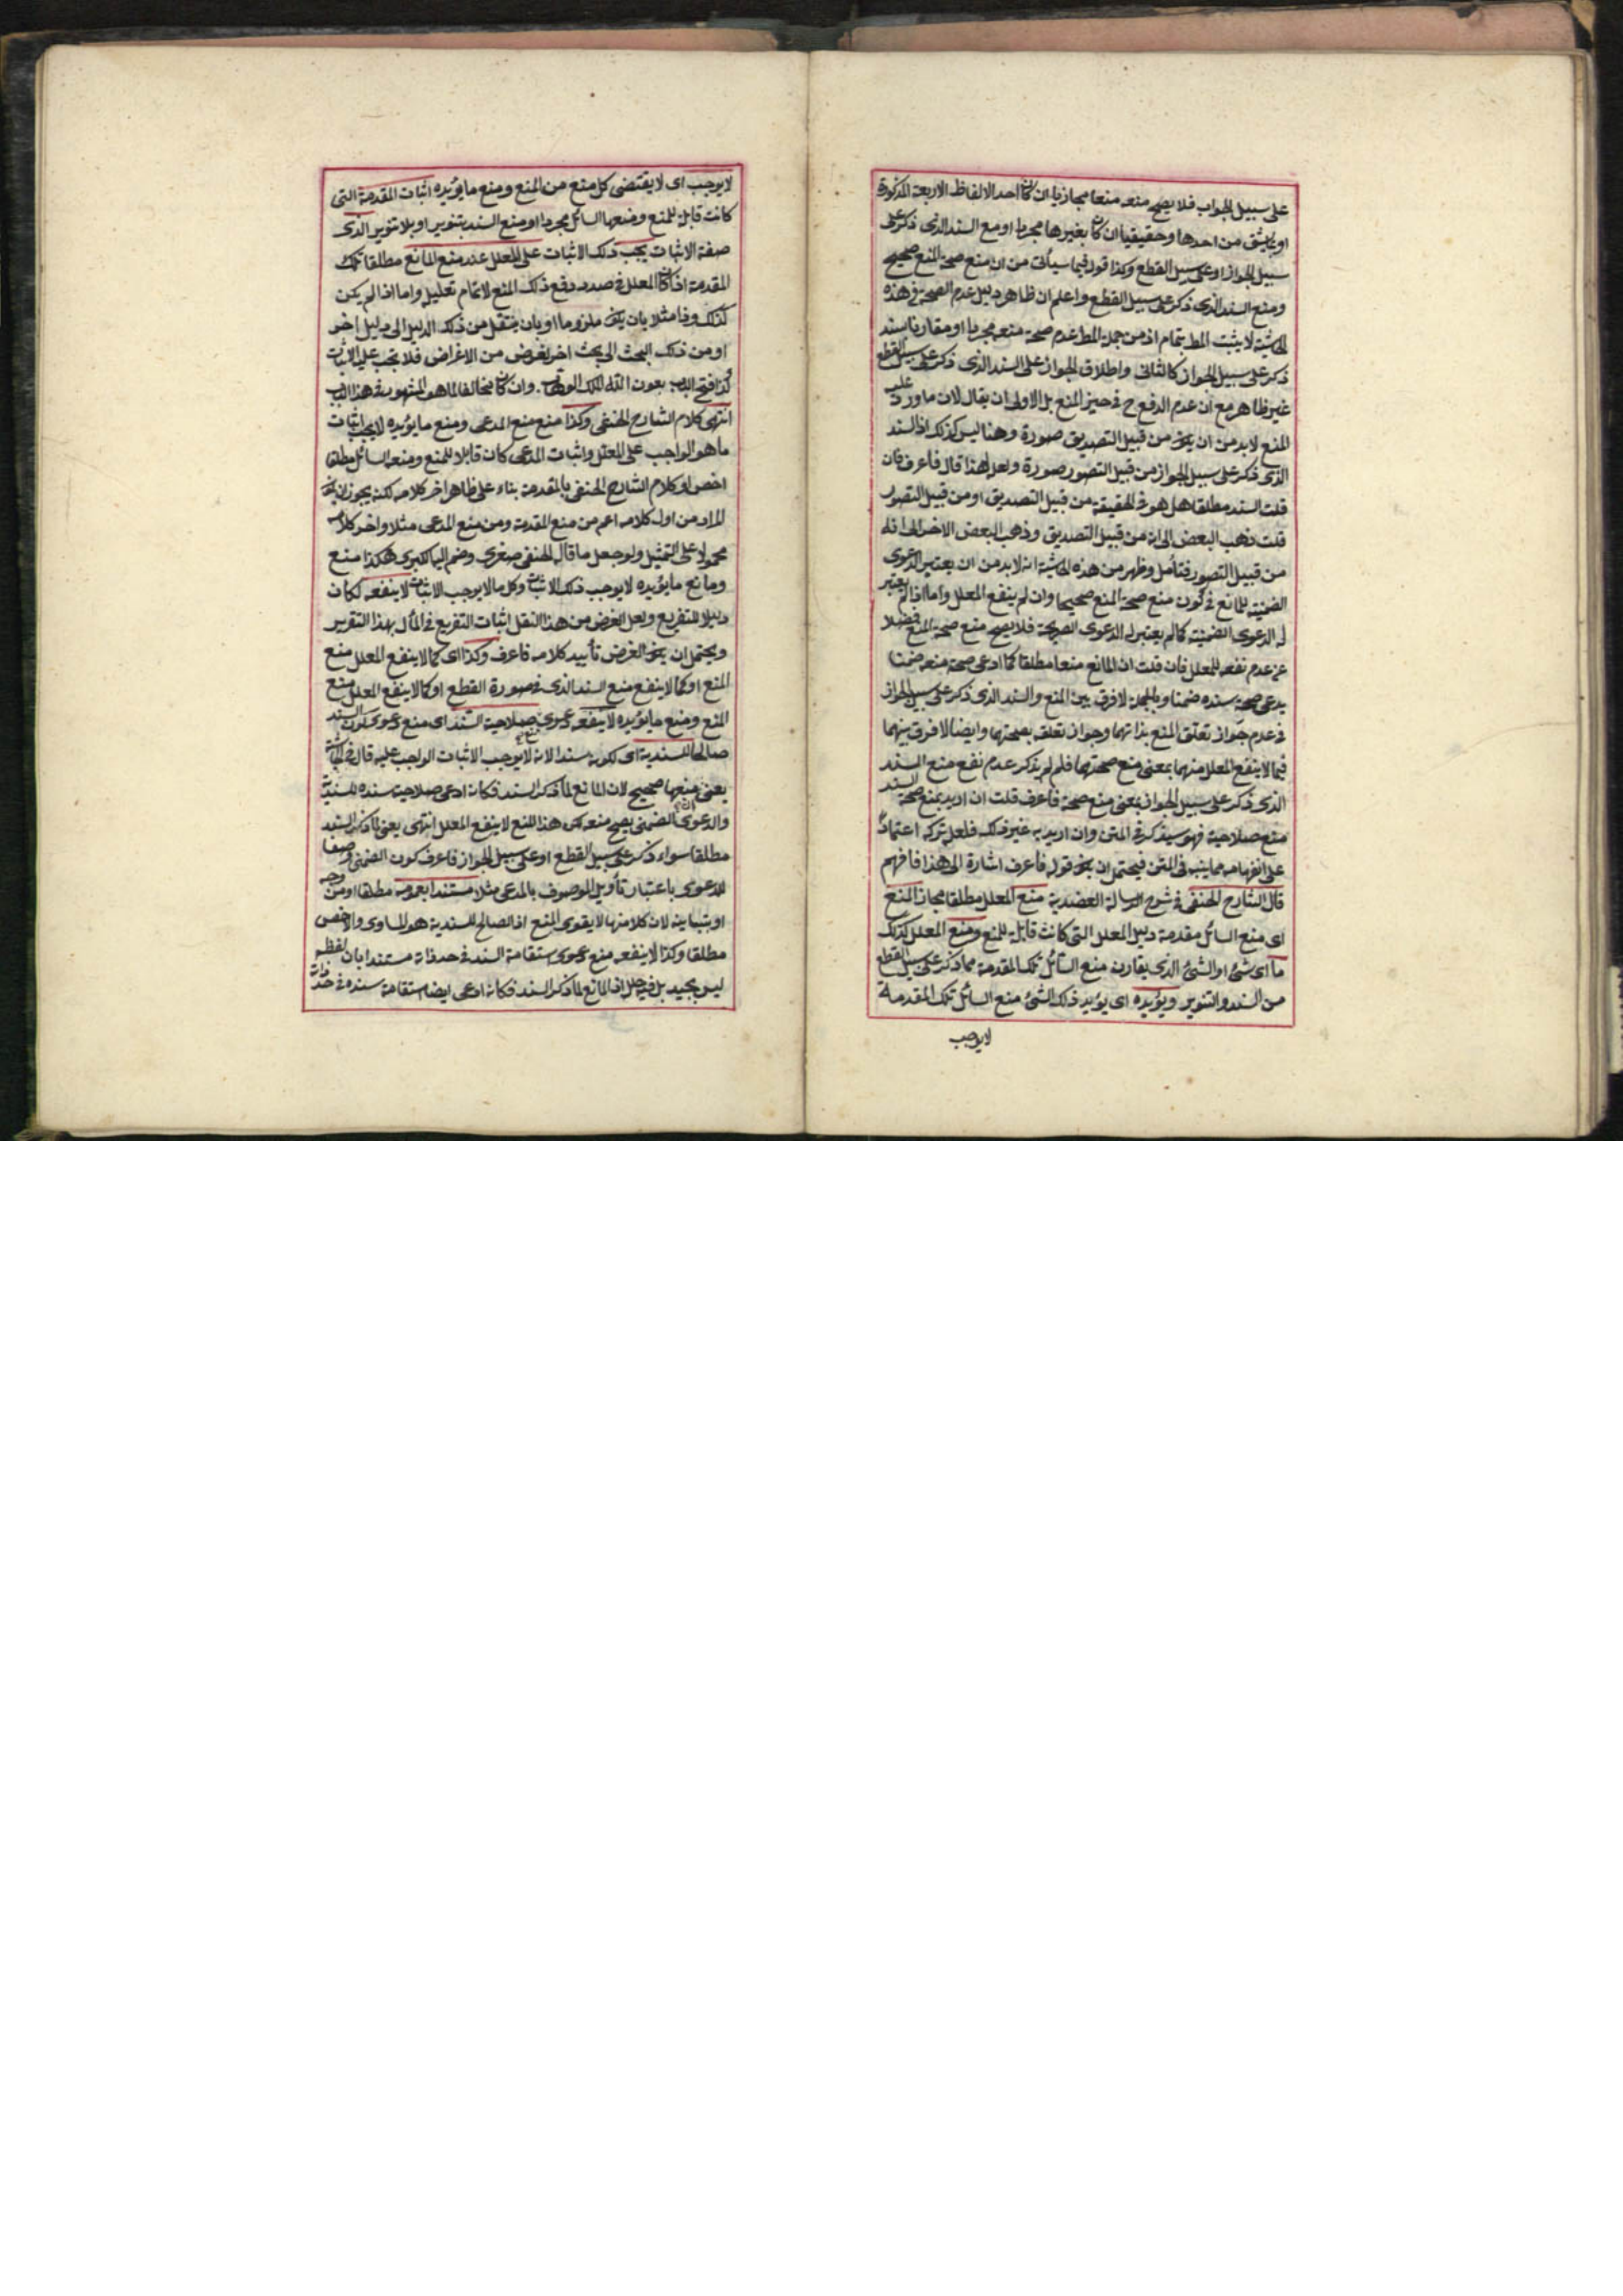 على سبيل الجواب فلا يصح منعه منعا مجازيا ان كان احد الالفاظ الاربعة المذكورة
او يشتق من احدها وحقيقيا ان كان بغيرها مجردا او مع السند الذى ذكر على
سبيل الجواز او على سبيل القطع وكذا قوله فيما سيأتى من ان منع صحة المنع صحيح
ومنع السند الذى ذكر على سبيل القطع واعلم ان ظاهر دليل عدم الصحة فى هذه
الحاشية لا يثبت المط بتمامه اذ من جملة المط عدم صحة منعه مجردا او مقارنا بسند
ذكر على سبيل الجواز كالثانى واطلاق الجواز على السند الذى ذكر على سبيل القطع
غير ظاهر مع ان عدم الدفع ح فى حيز المنع بل الاولى ان يقال لان ما ورد عليه
المنع لا بد من ان يكون من قبيل التصديق صورة وهنا ليس كذلك اذ السند
الذى ذكر على سبيل الجواز من قبيل التصور صورة ولعل لهذا قال فاعرف فان
قلت السند مطلقا هل هو فى الحقيقة من قبيل التصديق او من قبيل التصور
قلت ذهب البعض الى انه من قبيل التصديق وذهب البعض الاخر الى انه
من قبيل التصور فتأمل وظهر من هذه الحاشية انه لا بد من ان يعتبر الدعوى
الضمنية للمانع فى كون منع صحة المنع صحيحا وان لم ينفع المعلل واما اذا لم يعتبر
له الدعوى الضمنية كما لم يعتبر له الدعوى الصريحة فلا يصح منع صحة المنع فضلا
عن عدم نفعه للمعلل فان قلت ان المانع منعا مطلقا كما ادعى صحة منعه ضمنا
يدعى صحة سنده ضمنا وبالجملة لا فرق بين المنع والسند الذى ذكر على سبيل الجواز
فى عدم جواز تعلق المنع بذاتهما وجواز تعلقه بصحتهما وايضا لا فرق بينهما
فيما لا ينفع المعلل منهما بمعنى منع صحتهما فلم لم يذكر عدم نفع منع السند
الذى ذكر على سبيل الجواز بمعنى منع صحته فاعرف قلت ان اريد بمنع صحة السند
منع صلاحيته فهو سيذكره فى المتن وان اريد به غير ذلك فلعل تركه اعتمادا
على انفهامه مما ينبه فى المتن فيحتمل ان يكون قوله فاعرف اشارة الى هذا فافهم
قال الشارح الحنفى فى شرح الرسالة العضدية منع المعلل مطلقا مجاز المنع
اى منع السائل مقدمة دليل المعلل التى كانت قابلة للمنع ومنع المعلل كذلك
ما اى شئ او الشئ الذى يقارن منع السائل تلك المقدمة مما ذكر على سبيل القطع
من السند والتنوير ويؤيده اى يؤيد ذلك الشئ منع السائل تلك المقدمة
لا يوجب
لا يوجب اى لا يقتضى كل منع من المنع ومنع ما يؤيده اثبات المقدمة التى
كانت قابلة للمنع ومنعها السائل مجردا او منع السند بتنوير او بلا تنوير الذى
صفة الاثبات يجب ذلك الاثبات على المعلل عند منع المانع مطلقا تلك
المقدمة اذا كان المعلل فى صدد دفع ذلك المنع لاتمام تعليله واما اذا لم يكن
كذلك وذا مثلا بان يكون ملزوما او بان ينتقل من ذلك الدليل الى دليل اخر
او من ذلك البحث الى بحث اخر لغرض من الاغراض فلا يجب عليه الاثبات
كذا افتح الباب بعون الله الملك الوهاب. وان كان مخالفا لما هو المشهور فى هذا الباب
انتهى كلام الشارح الحنفى وكذا منع منع المدعى ومنع ما يؤيده لا يجب اثبات
ما هو الواجب على المعلل واثبات المدعى كان قابلا للمنع ومنعه السائل مطلقا
اخص او كلام الشارح الحنفى بالمقدمة بناء على ظاهر اخر كلامه لكنه يجوز ان يكون
المراد من اول كلامه اعم من منع المقدمة ومن منع المدعى مثلا واخر كلامه
محمولا على التمثيل ولو جعل ما قال الحنفى صغرى وضم اليها كبرى هكذا منع
ومانع ما يؤيده لا يوجب ذلك الاثبات وكل ما لا يوجب الاثبات لا ينفعه لكان
دليلا للتفريع ولعل الغرض من هذا النقل اثبات التفريع فى المأل بهذا التقرير
ويحتمل ان يكون الغرض تأييد كلامه فاعرف وكذا اى كما لا ينفع المعلل منع
المنع او كما لا ينفع منع السند الذى فى صورة القطع او كما لا ينفع المعلل منع
المنع ومنع ما يؤيده لا ينفعه دعوى صلاحية السند اى منع دعوى كون السند
صالحا للسندية اى لكونه سندا لانه لا يوجب الاثبات الواجب عليه قال فى الحاشية
يعنى منعها صحيح لان المانع لما ذكر السند فكانه ادعى صلاحية سنده للسندية
والدعوى الضمنى يصح منعه لكن هذا المنع لا ينفع المعلل انتهى يعنى لما ذكر السند
مطلقا سواء ذكر على سبيل القطع او على سبيل الجواز فاعرف كون الضمنى وصفا
للدعوى باعتبار تأويل الموصوف بالمدعى مثلا مستندا بعمومه مطلقا او من وجه
او بتباينه لان كلا منها لا يقوى المنع اذ الصالح للسندية هو المساوى والاخص
مطلقا وكذا لا ينفعه منع دعوى استقامة السند فى حد ذاته مستندا بان لفظه
ليس بجيد بل فيه خلل اذ المانع لما ذكر السند فكانه ادعى ايضا استقامة سنده فى حد ذاته